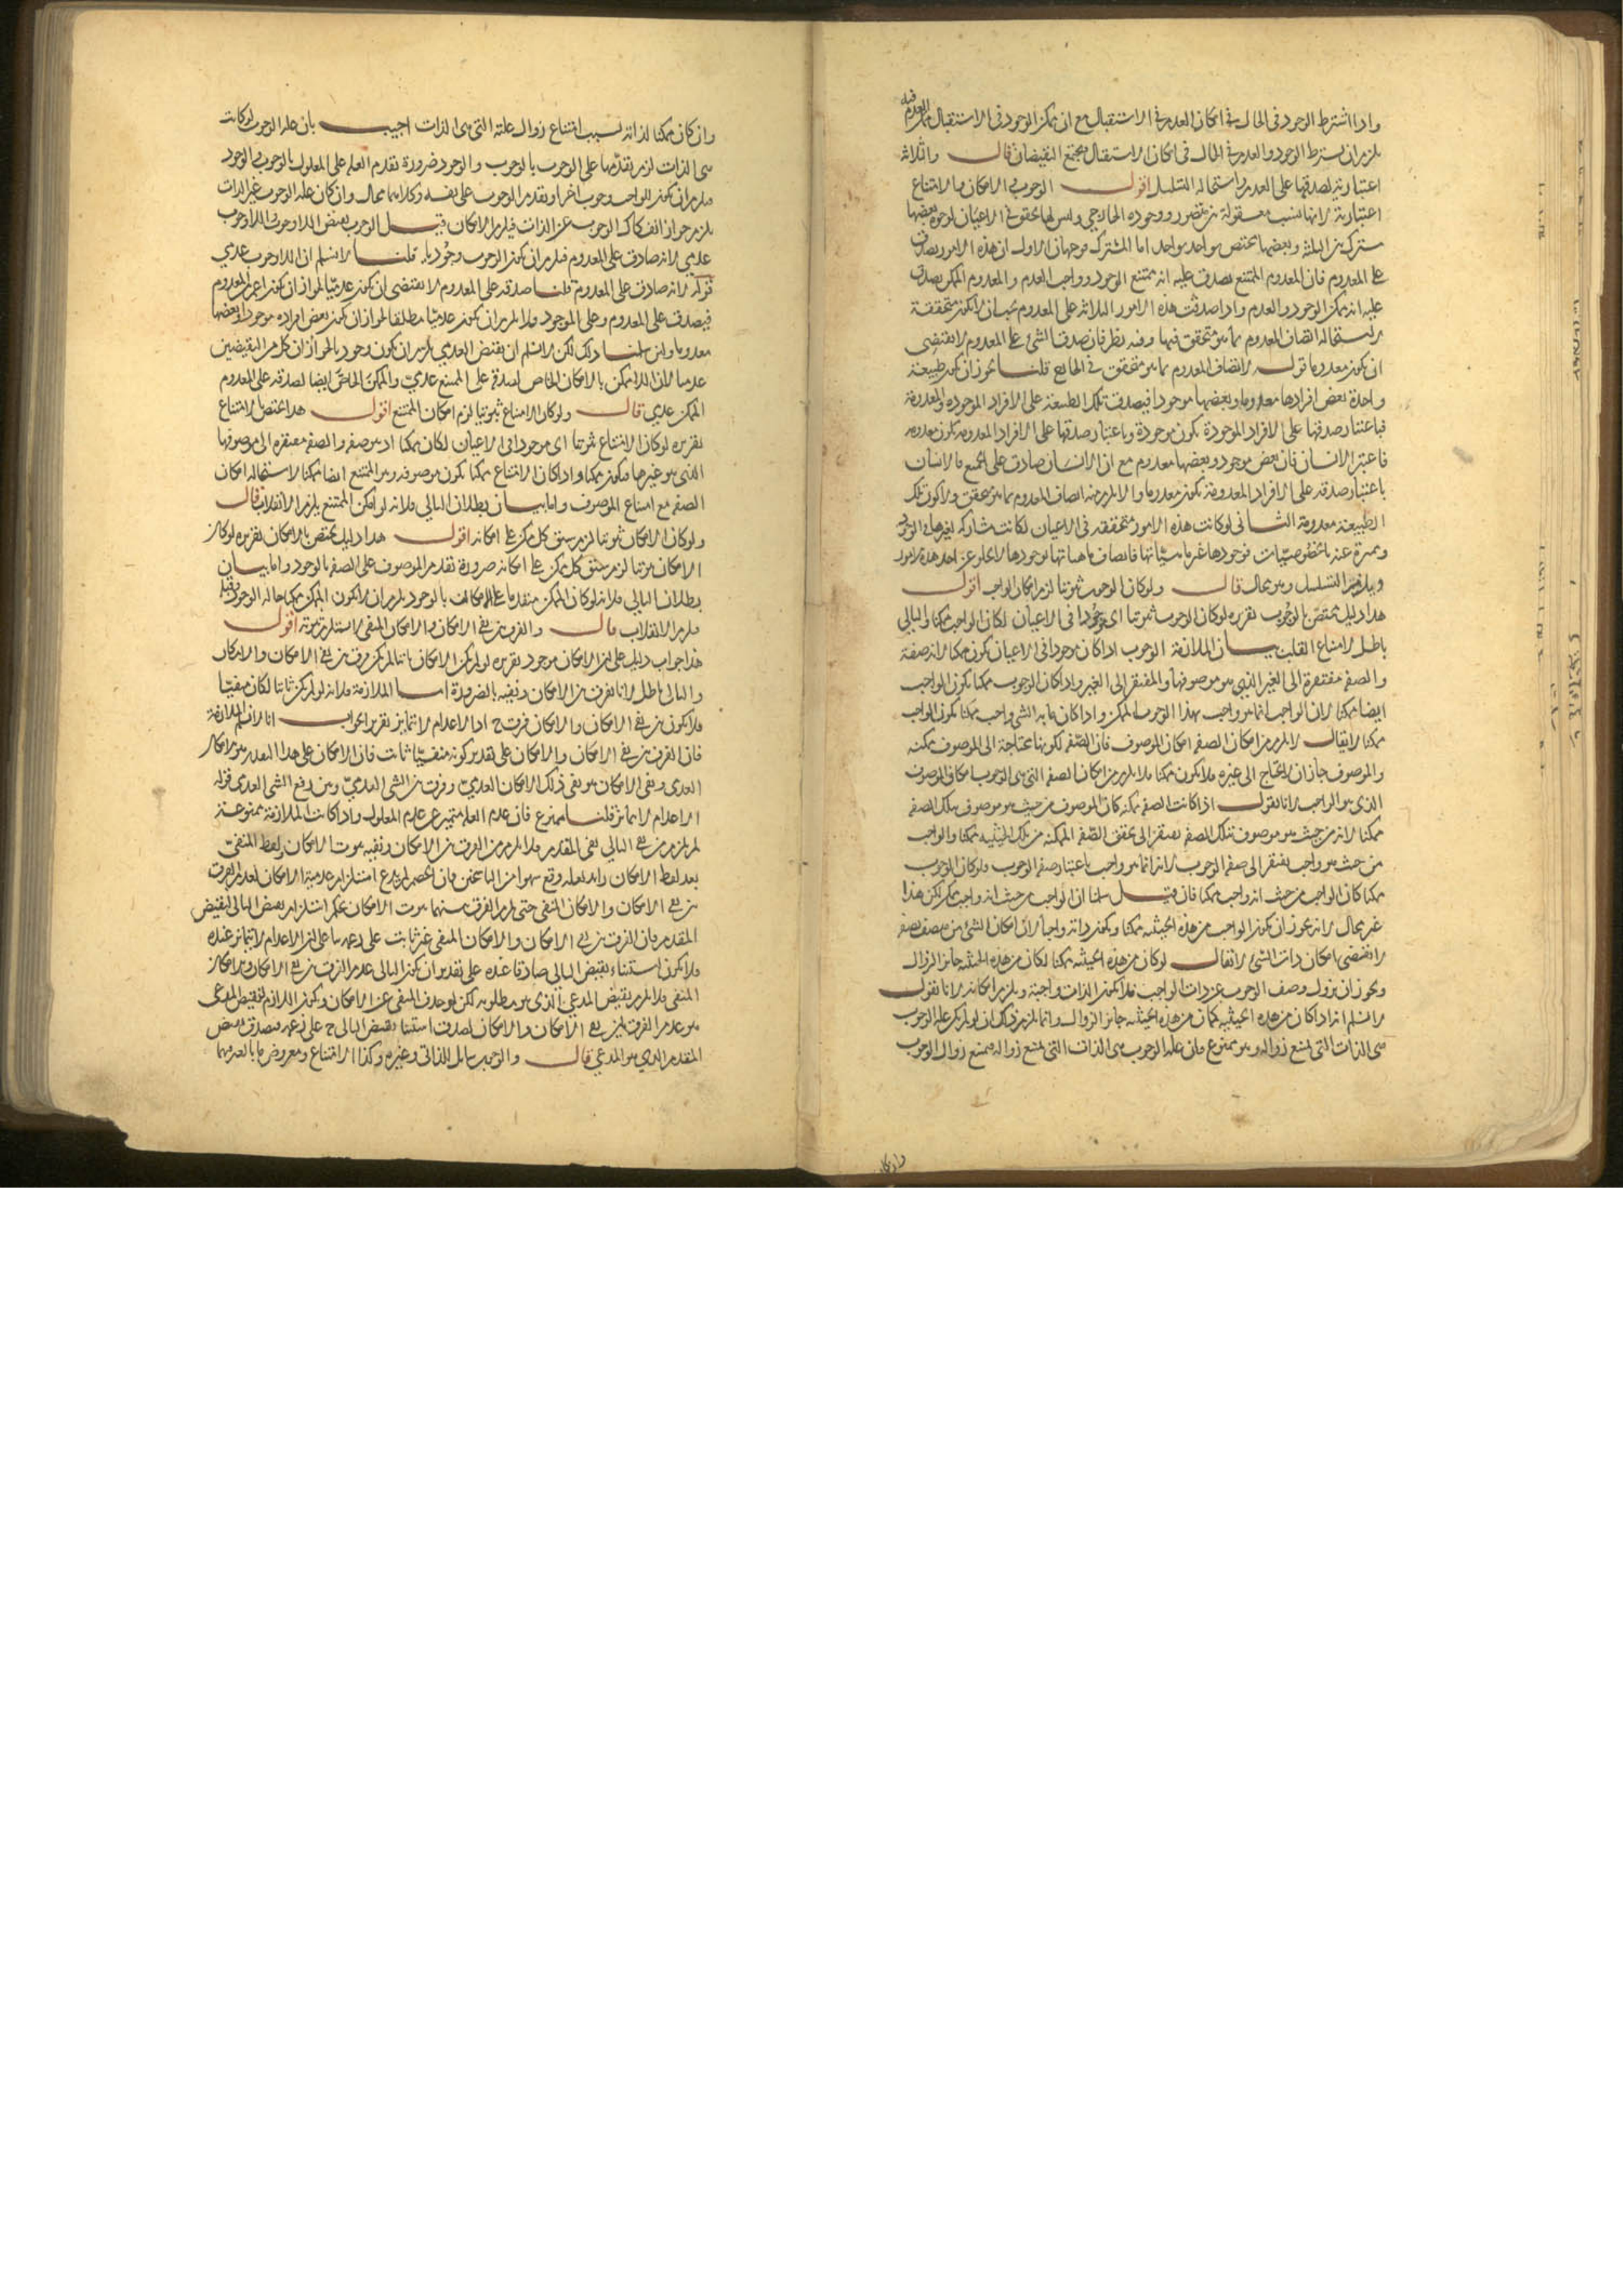 واذا اشترط الوجود فى الحال فى امكان العدم فى الاستقبال مع ان ممكن الوجود فى الاستقبال ممكن العدم فيه
يلزم ان يشترط الوجود والعدم فى الحال فى امكان الاستقبال فيجتمع النقيضان قال والثلاثة
اعتبارية لصدقها على المعدوم واستحالة التسلسل اقول الوجوب والامكان والامتناع
اعتبارية لانها نسب معقولة بين متصور ووجوده الخارجى وليس لها تحقق فى الاعيان لوجوه بعضها
مشترك بين الثلثة وبعضها مختص بواحد واحد اما المشترك فوجهان الاول ان هذه الامور تصدق
على المعدوم فان المعدوم الممتنع يصدق عليه انه ممتنع الوجود وواجب العدم والمعدوم الممكن يصدق
عليه انه ممكن الوجود والعدم واذا صدقت هذه الامور الثلاثة على المعدوم يجب ان لا تكون متحققة
لاستحالة اتصاف المعدوم بما هو متحقق فيها وفيه نظر فان صدق الشئ على المعدوم لا يقتضى
ان يكون معدوما قوله لاتصاف المعدوم بما هو متحقق فى الخارج قلنا يجوز ان يكون طبيعة
واحدة بعض افرادها معدوما وبعضها موجودا فيصدق تلك الطبيعة على الافراد الموجودة والمعدومة
فباعتبار صدقها على الافراد الموجودة يكون موجودة وباعتبار صدقها على الافراد المعدومة يكون معدومة
فاعتبر الانسان فان بعض موجود وبعضها معدوم مع ان الانسان صادق على الجميع فالانسان
باعتبار صدقه على الافراد المعدومة يكون معدوما ولا يلزم منه اتصاف المعدوم بما هو متحقق ولا كون تلك
الطبيعة معدومة الثانى لو كانت هذه الامور متحققة فى الاعيان لكانت مشاركة لغيرها فى الوجود
ومميزة عنه بالخصوصيات فوجودها غير ماهياتها فاتصاف ماهياتها بوجودها لا يخلو عن احد هذه الامور
ويلزم التسلسل وهو محال قال ولو كان الوجوب ثبوتيا لزم امكان الواجب اقول
هذا دليل مختص بالوجوب تقريره لو كان الوجوب ثبوتيا اى موجودا فى الاعيان لكان الواجب ممكنا والتالى
باطل لامتناع القلب بيان الملازمة الوجوب اذا كان موجودا فى الاعيان يكون ممكنا لانه صفة
والصفة مفتقرة الى الغير الذى هو موصوفها والمفتقر الى الغير واذا كان الوجوب ممكنا يكون الواجب
ايضا ممكنا لان الواجب انما هو واجب بهذا الوجوب الممكن واذا كان ما به الشئ واجب ممكنا يكون الواجب
ممكنا لا يقال لا يلزم من امكان الصفة امكان الموصوف فان الصفة لكونها محتاجة الى الموصوف ممكنة
والموصوف جاز ان لا يحتاج الى غيره فلا يكون ممكنا فلا يلزم من امكان الصفة التى هى الوجوب امكان الموصوف
الذى هو الواجب لانا نقول اذا كانت الصفة ممكنة كان الموصوف من حيث هو موصوف بتلك الصفة
ممكنا لانه من حيث هو موصوف بتلك الصفة يفتقر الى تحقق الصفة الممكنة من تلك الحيثية ممكنا والواجب
من حيث هو واجب يفتقر الى صفة الوجوب لانه انما هو واجب باعتبار صفة الوجوب ولو كان الوجوب
ممكنا كان الواجب من حيث انه واجب ممكنا فان قيل سلمنا ان الواجب من حيث انه واجب ممكن لكن هذا
غير محال لانه يجوز ان يكون الواجب من هذه الحيثية ممكنا ويكون ذاته واجبا لان امكان الشئ من حيث صفة
لا يقتضى امكان ذات الشئ لا يقال لو كان من هذه الحيثية ممكنا لكان من هذه الحيثية جائز الزوال
ويجوز ان يزول وصف الوجوب عن ذات الواجب فلا يكون الذات واجبة ويلزم امكانه لانا نقول
لا نسلم انه اذا كان من هذه الحيثية ممكنا كان من هذه الحيثية جائز الزوال وانما يلزم ذلك ان لو لم يكن علة الوجوب
هى الذات التى يمتنع زواله وهو ممنوع فان علة الوجوب هى الذات التى يمتنع زواله فيمتنع زوال الوجوب
وان كان
وان كان ممكنا لذاته بسبب امتناع زوال علته التى هى الذات اجيب بان علة الوجوب لو كانت
هى الذات لزم تقدمها على الوجوب بالوجوب والوجود ضرورة تقدم العلة على المعلول بالوجوب والوجود
فيلزم ان يكون للواجب وجوب اخر او تقدم الوجوب على نفسه وكلاهما محال وان كان علة الوجوب غير الذات
يلزم جواز انفكاك الوجوب عن الذات فيلزم الامكان قيل الوجوب نقيض اللاوجوب واللاوجوب
عدمى لانه صادق على المعدوم فيلزم ان يكون الوجوب وجوديا قلنا لا نسلم ان اللاوجوب عدمى
قوله لانه صادق على المعدوم قلنا صدقه على المعدوم لا يقتضى ان يكون عدميا لجواز ان يكون اعم من المعدوم
فيصدق على المعدوم وعلى الموجود فلا يلزم ان يكون عدميا مطلقا لجواز ان يكون بعض افراده موجودا وبعضها
معدوما ولئن سلمنا ذلك لكن لا نسلم ان نقيض العدمى يلزم ان يكون وجوديا لجواز ان كلا من النقيضين
عدميا لان اللاممكن بالامكان الخاص لصدقه على الممتنع عدمى والممكن الخاص ايضا لصدقه على المعدوم
الممكن عدمى قال ولو كان الامتناع ثبوتيا لزم امكان الممتنع اقول هذا مختص بالامتناع
تقريره لو كان الامتناع ثبوتيا اى موجودا فى الاعيان لكان ممكنا اذ هو صفة والصفة مفتقرة الى موصوفها
الذى هو غيرها فيكون ممكنا واذا كان الامتناع ممكنا يكون موصوفه وهو الممتنع ايضا ممكنا لاستحالة امكان
الصفة مع امتناع الموصوف واما بيان بطلان التالى فلانه لو امكن الممتنع يلزم الانقلاب قال
ولو كان الامكان ثبوتيا لزم سبق كل ممكن على امكانه اقول هذا دليل مختص بالامكان تقريره لو كان
الامكان ثبوتيا لزم سبق كل ممكن على امكانه ضرورة تقدم الموصوف على الصفة بالوجود واما بيان
بطلان التالى فلانه لو كان الممكن متقدما على الامكان بالوجود يلزم ان لا يكون الممكن ممكنا حالة الوجود وقبله
فيلزم الانقلاب قال والفرق بين نفى الامكان والامكان المنفى لا يستلزم ثبوته اقول
هذا جواب دليل على ان الامكان موجود تقريره لو لم يكن الامكان ثابتا لم يكن فرق بين نفى الامكان والامكان
والتالى باطل لانا نفرق بين الامكان ونفيه بالضرورة اما الملازمة فلانه لو لم يكن ثابتا لكان منفيا
فلا يكون بين نفى الامكان والامكان فرق ح اذ الاعدام لا تتمايز تقرير الجواب انا لا نسلم الملازمة
فان الفرق بين نفى الامكان والامكان على تقدير كونه منفيا ثابت فان الامكان على هذا التقدير هو الامكان
العدمى ونفى الامكان هو نفى ذلك الامكان العدمى وفرق بين الشئ العدمى وبين رفع الشئ العدمى قوله
الاعدام لا تتمايز قلنا ممنوع فان عدم العلة متميز عن عدم المعلول واذا كانت الملازمة ممنوعة
لم يلزم من نفى التالى نفى المقدم فلا يلزم من الفرق بين الامكان ونفيه ثبوت الامكان ولفظ المنفى
بعد لفظ الامكان زائد لعله وقع سهوا من الناسخين فان الخصم لم يدع استلزام عدمية الامكان لعدم الفرق
بين نفى الامكان والامكان المنفى حتى يلزم الفرق بينهما ثبوت الامكان بحكم استلزام نقيض التالى لنقيض
المقدم فان الفرق بين نفى الامكان والامكان المنفى غير ثابت على زعمه بناء على ان الاعدام لا تتمايز عنده
فلا يكون استثناء نقيض التالى صادقا عنده على تقدير ان يكون التالى عدم الفرق بين نفى الامكان وبين الامكان
المنفى فلا يلزم نقيض المدعى الذى هو مطلوبه لكن لو حذف المنفى عن الامكان ويكون اللازم لنقيض المدعى
هو عدم الفرق بين نفى الامكان والامكان لصدق استثناء نقيض التالى ح على زعمه فيصدق نقيض
المقدم الذى هو المدعى قال والوجوب شامل للذاتى وغيره وكذا الامتناع ومعروض ما بالغير منهما